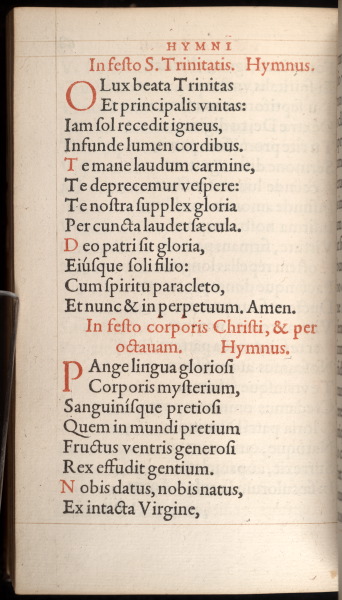 HYMNI
In festo S. Trinitatis. Hymnus.
O Lux beata Trinitas
Et principalis vnitas:
Iam sol recedit igneus,
Infunde lumen cordibus.
Te mane laudum carmine,
Te deprecemur vespere:
Te nostra supplex gloria
Per cuncta laudet sæcula.
Deo patri sit gloria,
Eiúsque soli filio:
Cum spiritu paracleto,
Et nunc & in perpetuum. Amen.
In festo corporis Christi, & per
octauam. Hymnus.
PAnge lingua gloriosi
Corporis mysterium,
Sanguinísque pretiosi
Quem in mundi pretium
Fructus ventris generosi
Rex effudit gentium.
Nobis datus, nobis natus,
Ex intacta Virgine,